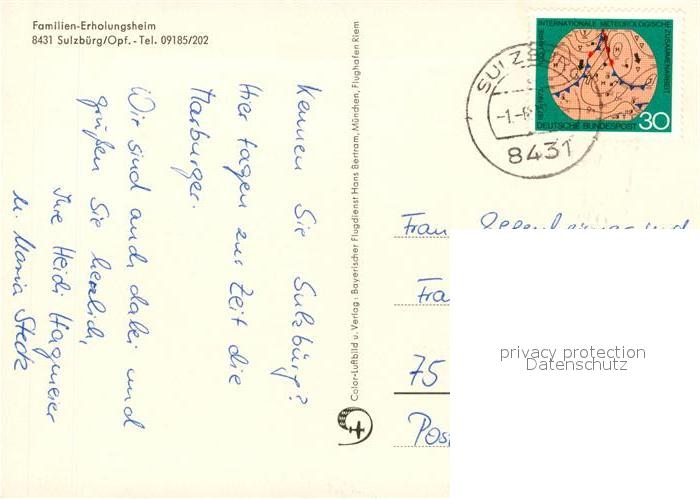 Familien-Erholungsheim
8431 Sulzbürg/Opf. - Tel. 09185/202
Kennen Sie Sulzbürg?
Hier tagen zur Zeit die
Marburger.
Wir sind auch dabei und
grüßen Sie herzlich,
Ihre Heidi Hagmeier
u. Maria Steck
Color-Luftbild u. Verlag: Bayerischer Flugdienst Hans Bertram, München, Flughafen Riem
INTERNATIONALE METEOROLOGISCHE
ZUSAMMENARBEIT
100 JAHRE
DEUTSCHE BUNDESPOST
30
SULZBÜRG
-1.-
8431
Frau
und
Fra
75
Pos
privacy protection
Datenschutz